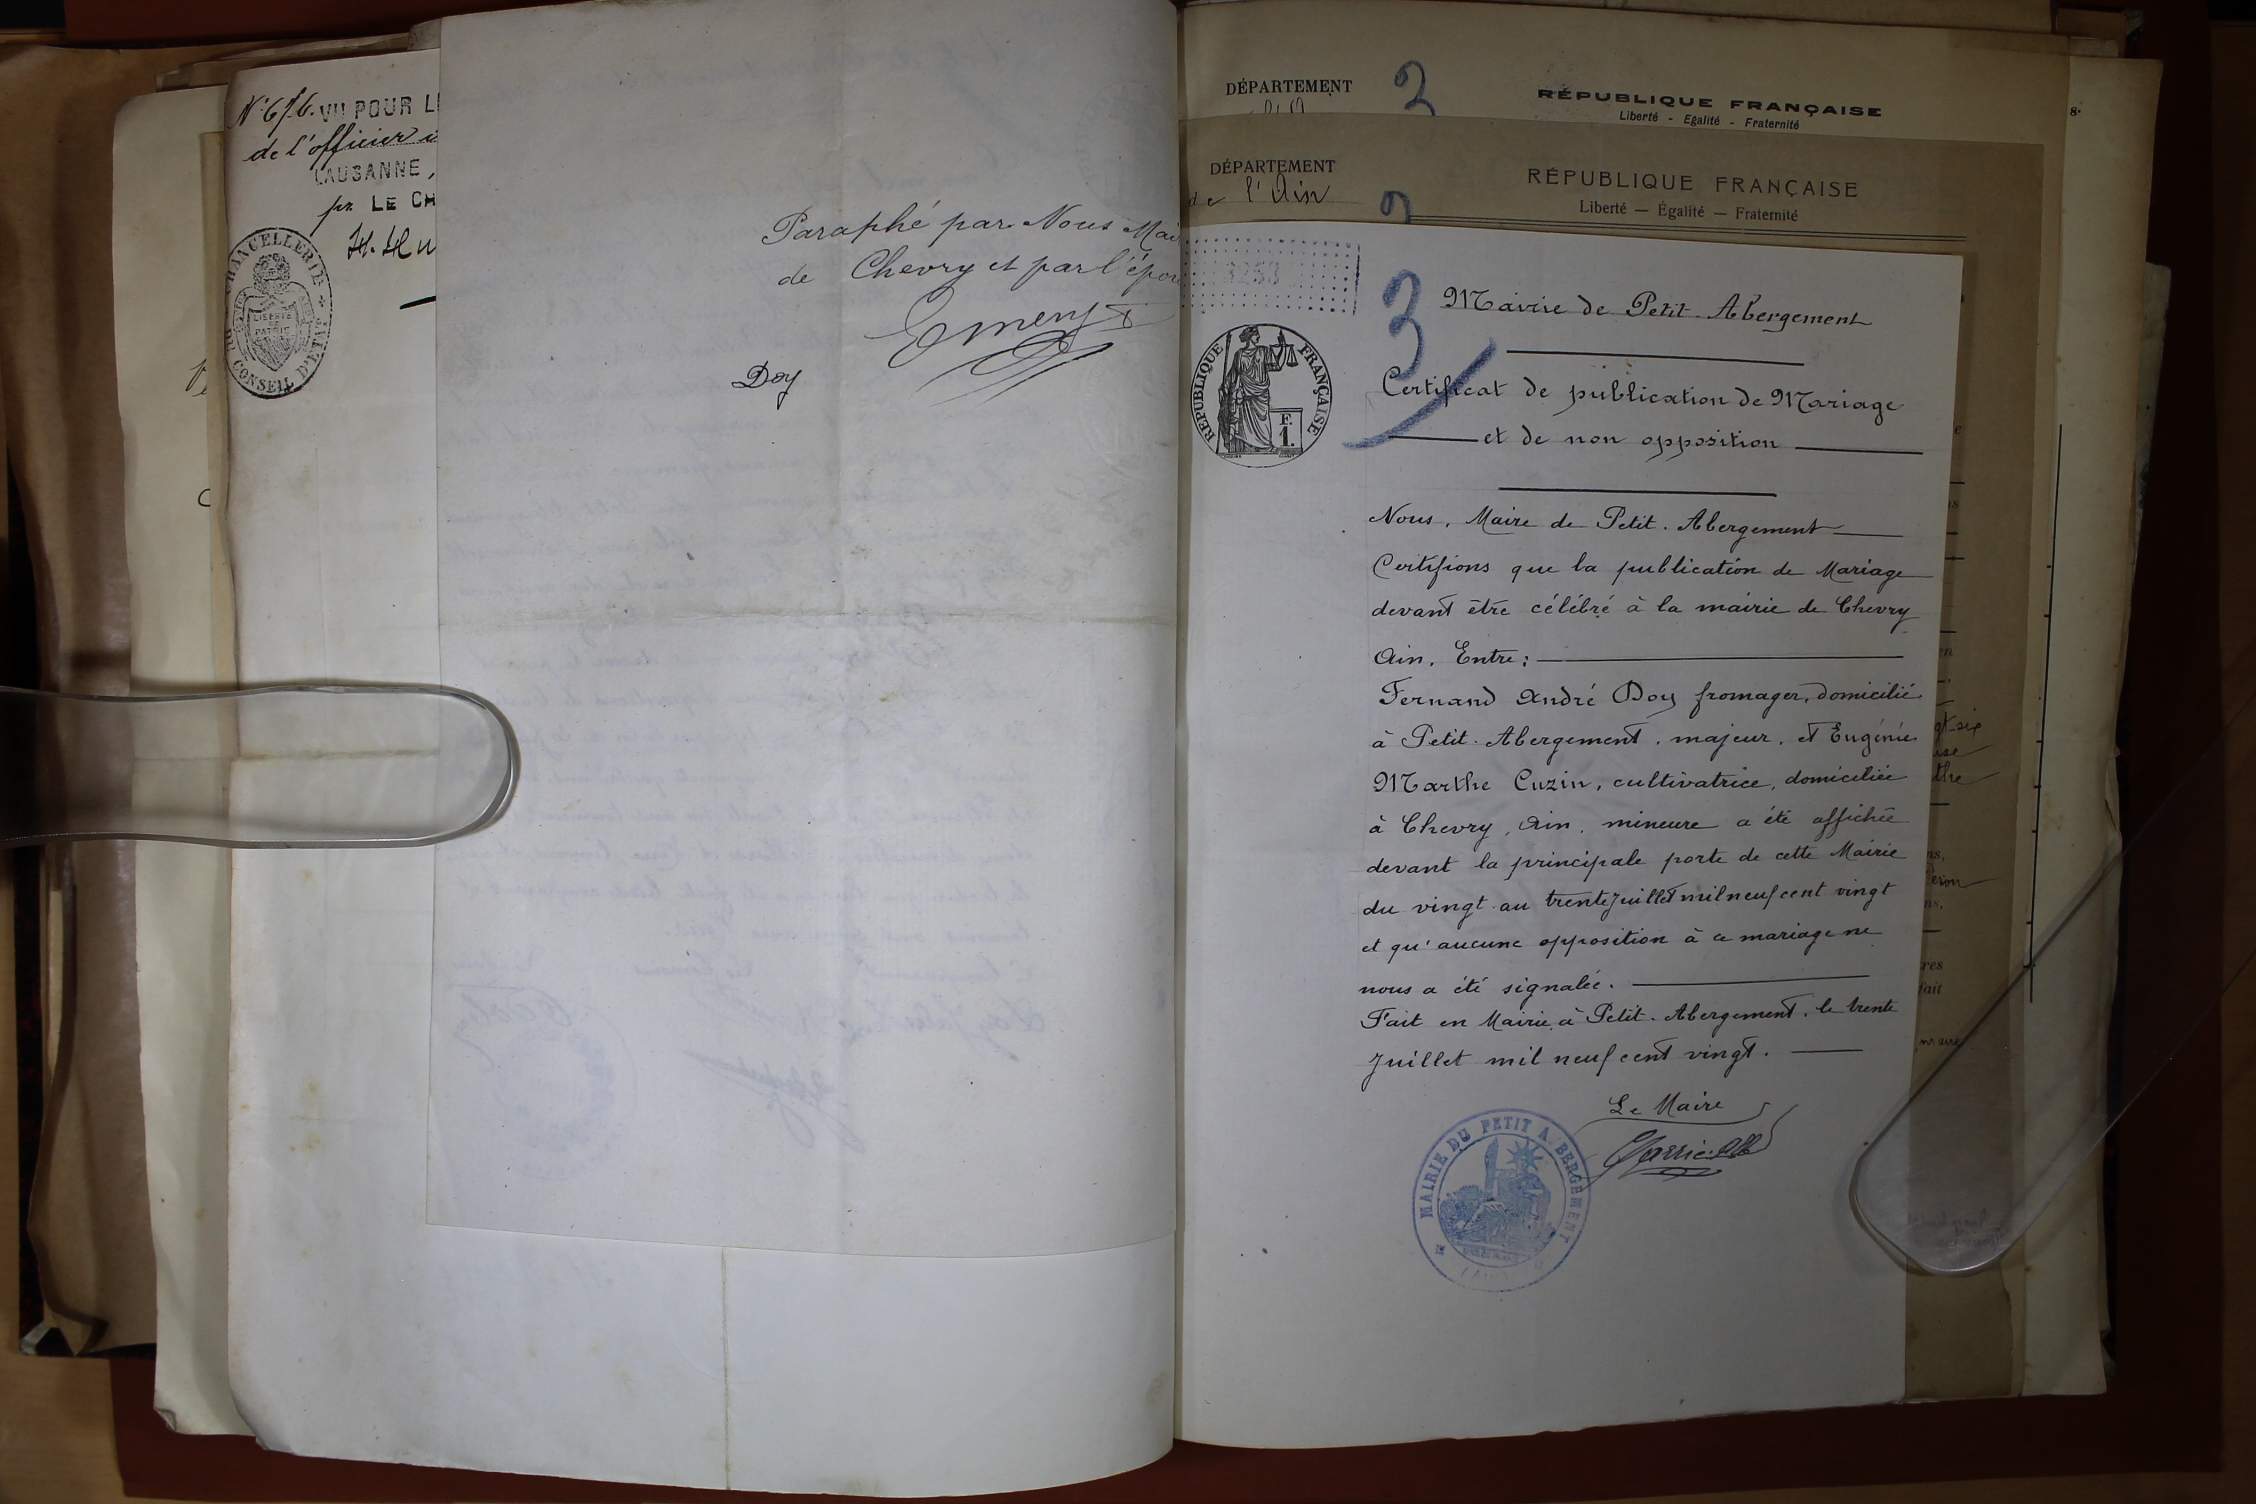 VU POUR L
de l'officier
LAUSANNE,
pr. LE CH
H. Hu
CHANCELLERIE
DU CONSEIL D'ETAT
LIBERTÉ
ET
PATRIE
Paraphé par Nous Mai
de Chevry et par l'épou
Doy
DÉPARTEMENT
3
RÉPUBLIQUE FRANÇAISE
Liberté - Egalité - Fraternité
8.
DÉPARTEMENT
de l'Ain
RÉPUBLIQUE FRANÇAISE
Liberté — Égalité — Fraternité
3
Mairie de Petit-Abergement
RÉPUBLIQUE FRANÇAISE
F.
1.
Certificat de publication de Mariage
et de non opposition
Nous, Maire de Petit-Abergement
Certifions que la publication de Mariage
devant être célébré à la mairie de Chevry
Ain, Entre:
Fernand André Doy fromager, domicilié
à Petit-Abergement, majeur, et Eugénie
Marthe Cuzin, cultivatrice, domiciliée
à Chevry, Ain, mineure a été affichée
devant la principale porte de cette Mairie
du vingt au trente Juillet mil neuf cent vingt
et qu'aucune opposition à ce mariage ne
nous a été signalée.
Fait en Mairie à Petit-Abergement, le trente
Juillet mil neuf cent vingt.
Le Maire
MAIRIE DU PETIT ABERGEMENT